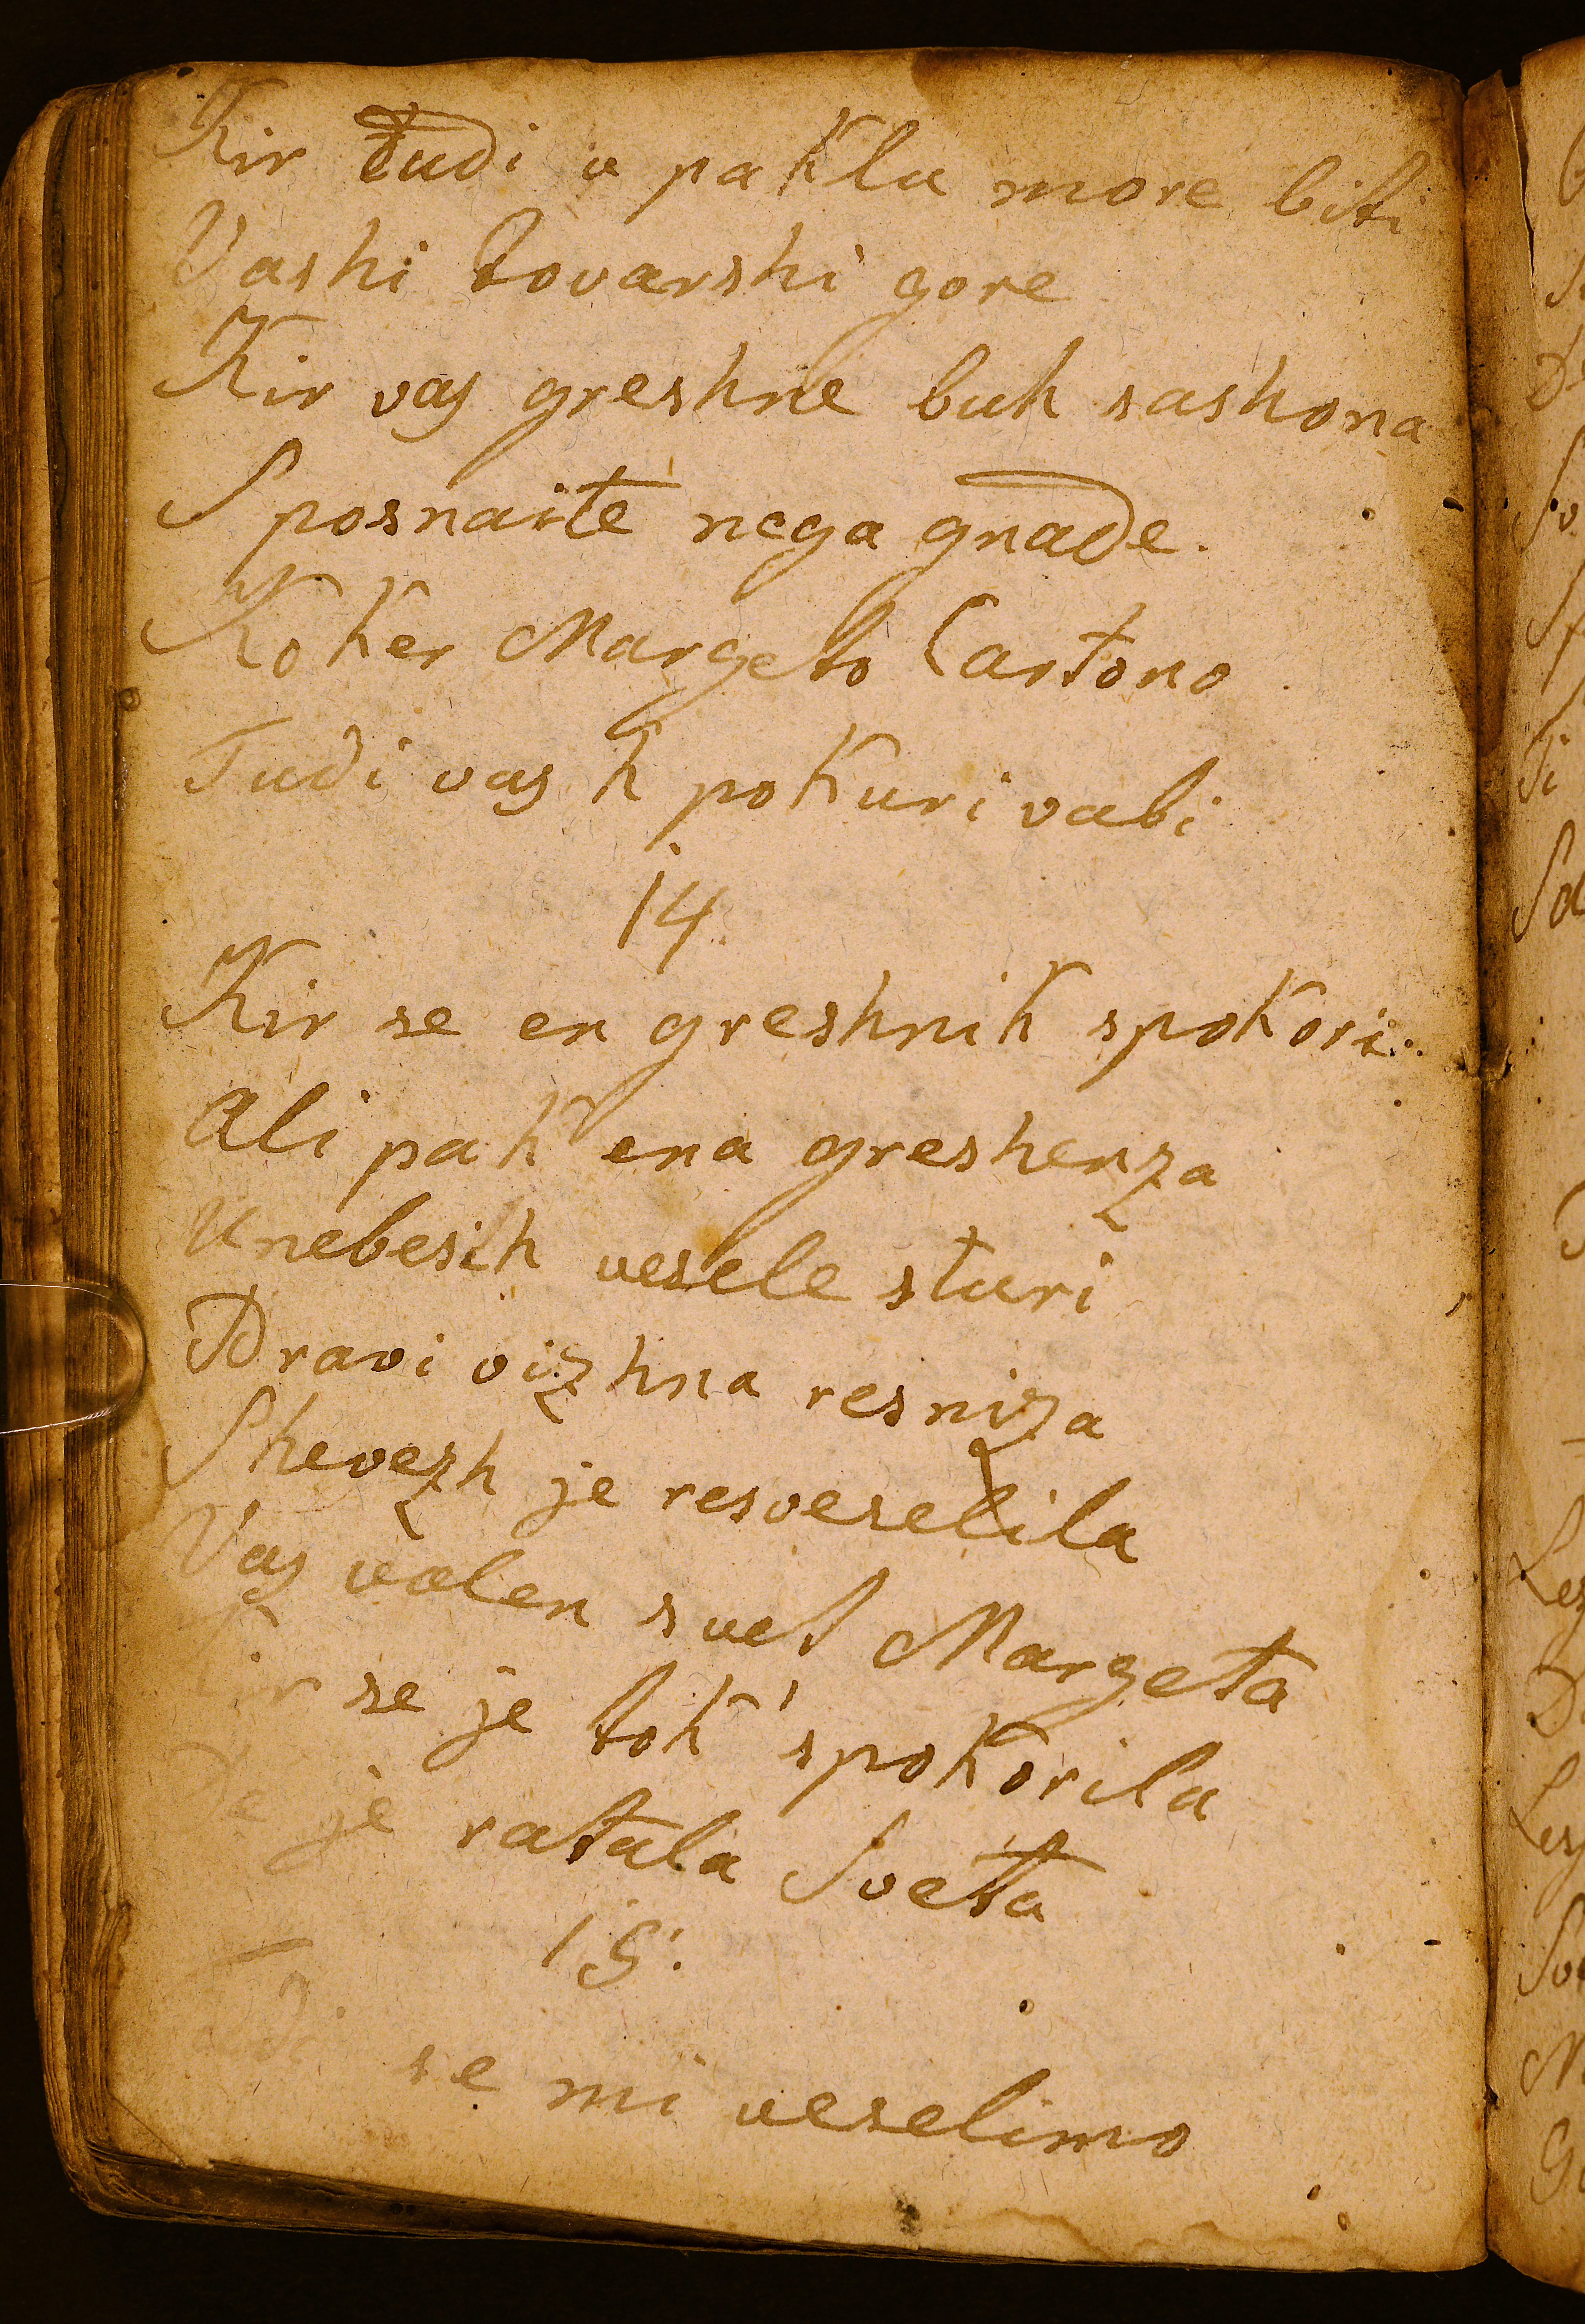 Kir tudi u paklu more biti
Vashi tovarshi gore
Kir vas greshne buh sashona
Sposnaite nega gnade.
Koker Margeto Cartono
Tudi vas k pokuri vabi
14.
Kir se en greshnik spokori.
Ali pak ena greshenza
Unebesih vesele sturi
Pravi vizhna resniza
Shevezh je resveselila
Vas volen svet Margeta
Kir se je tok' spokorila
De je ratala Sveta
15.
se mi veselimo